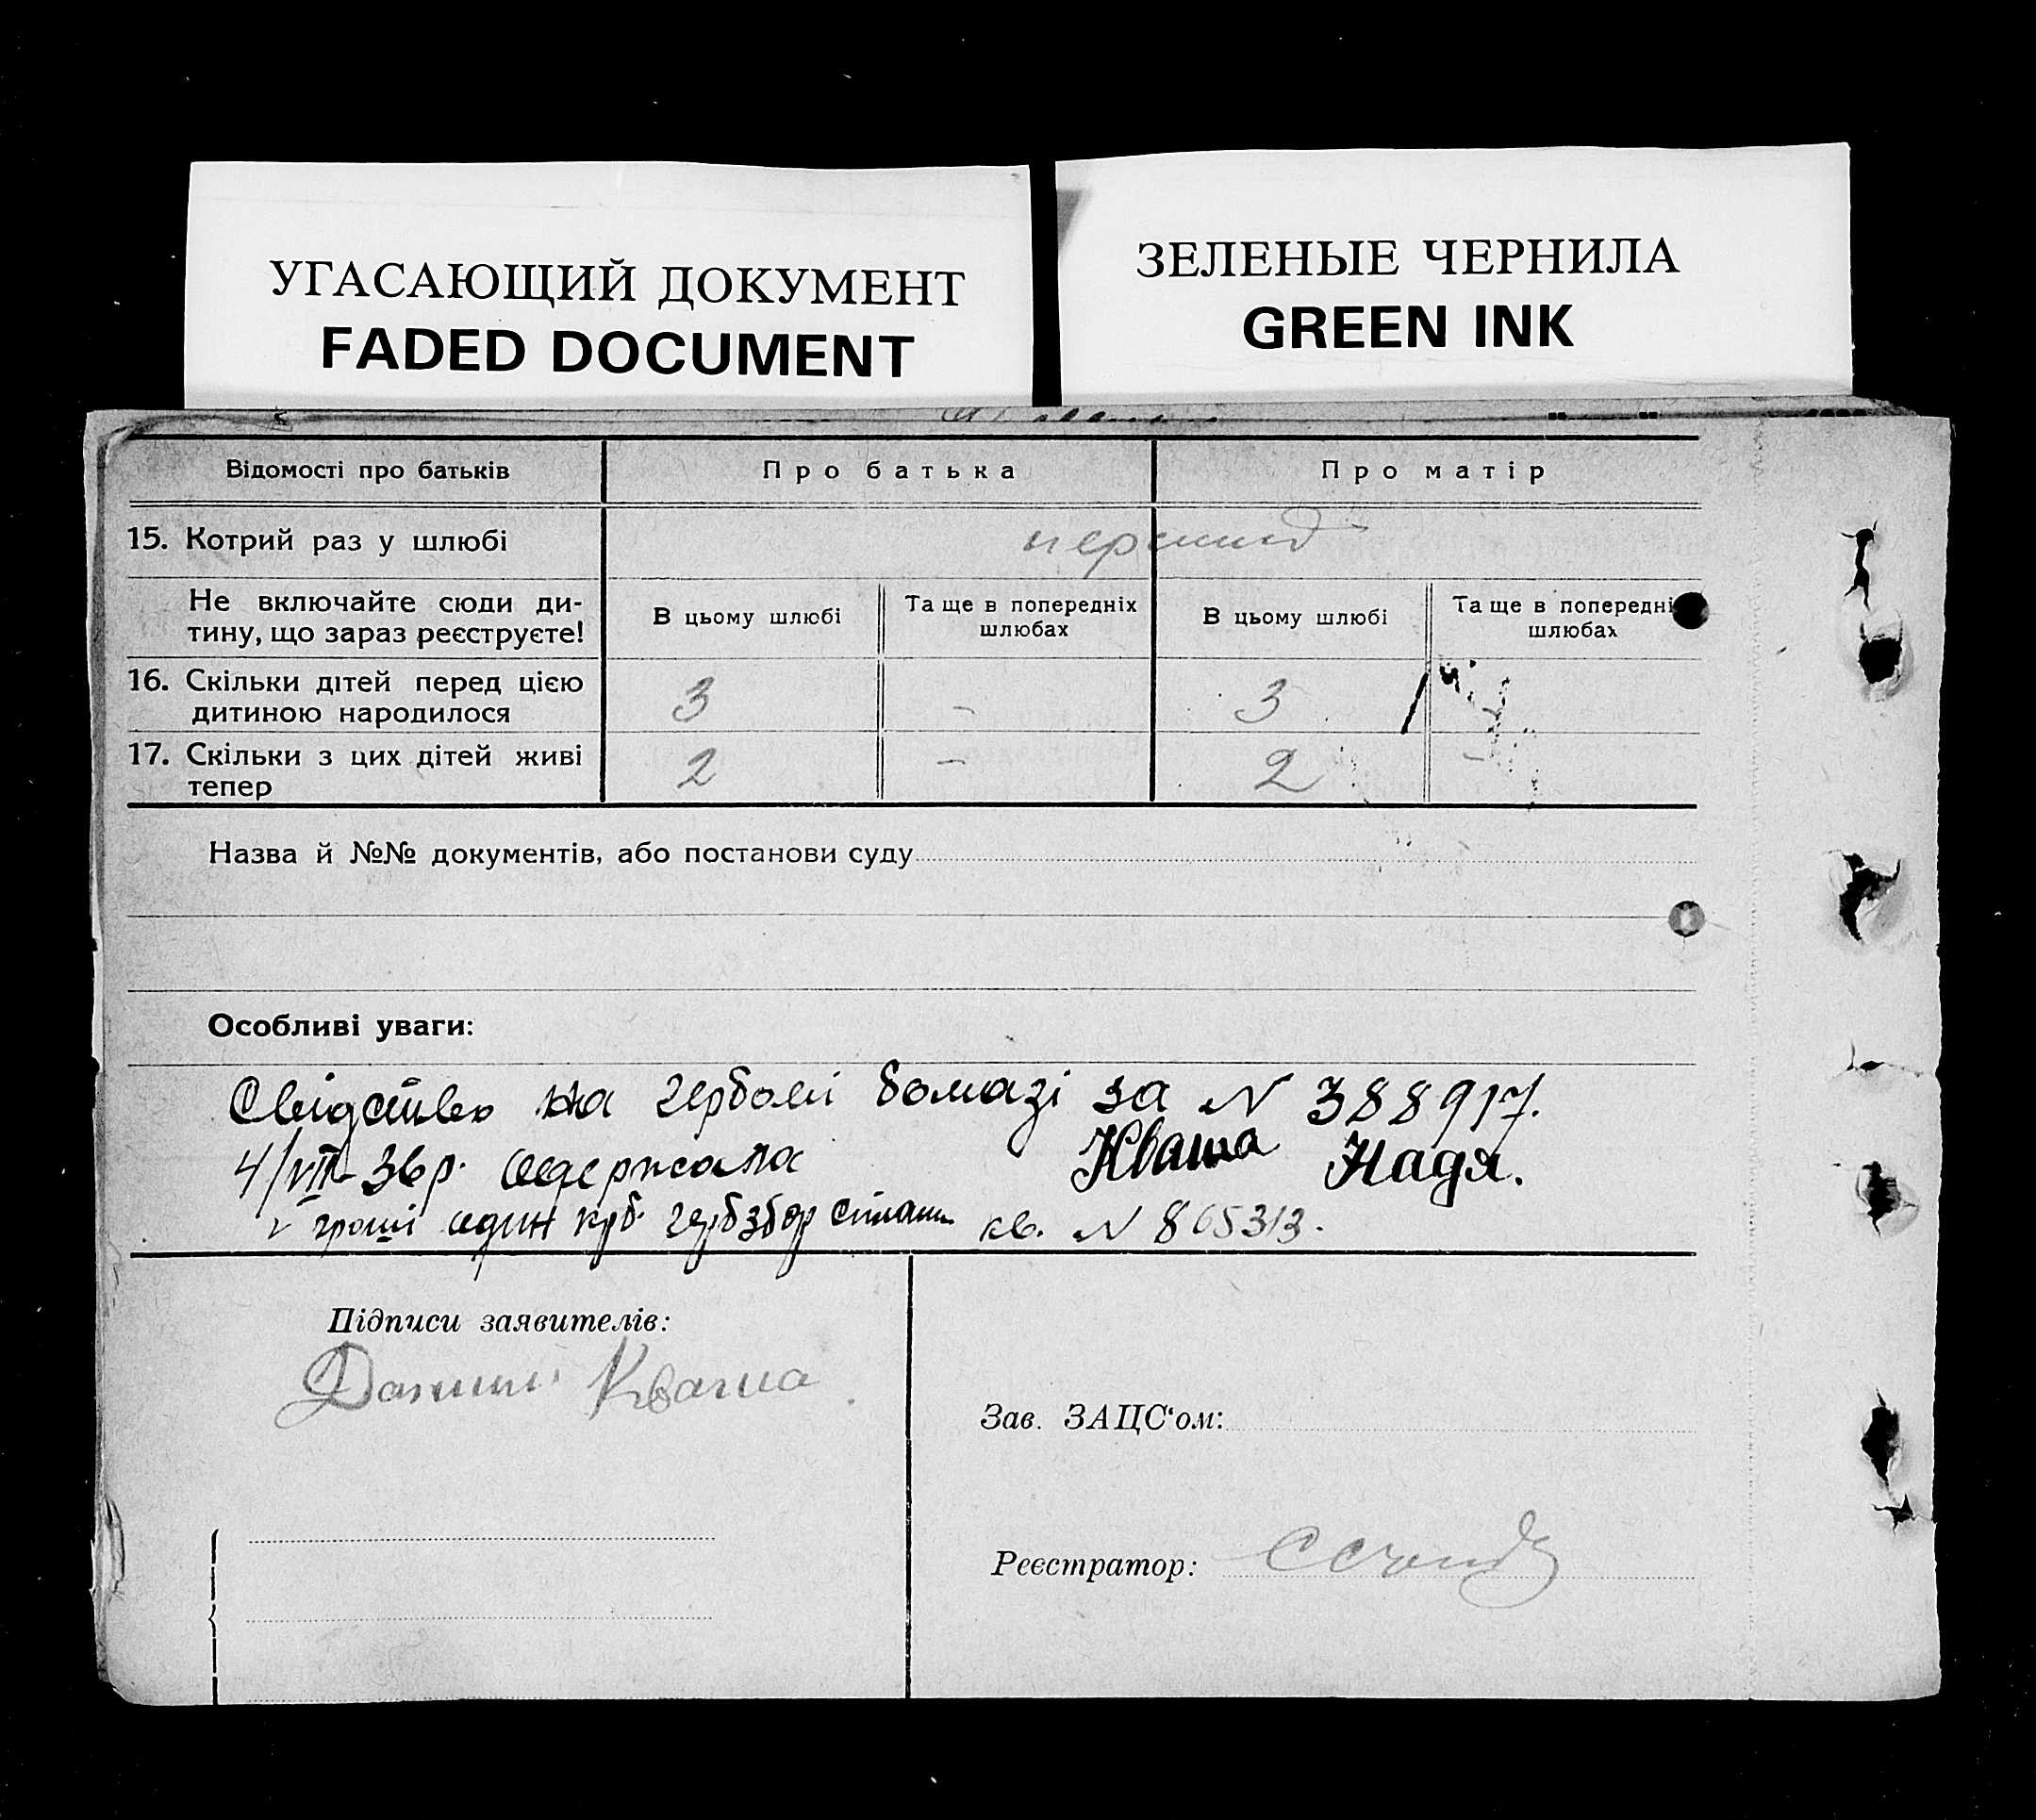 УГАСАЮЩИЙ ДОКУМЕНТ
FADED DOCUMENT
ЗЕЛЕНЫЕ ЧЕРНИЛА
GREEN INK
Відомості про батьків
Про батька
Про матір
15. Котрий раз у шлюбі
перший
Не включайте сюди ди-
тину, що зараз реєструєте!
В цьому шлюбі
Та ще в попередніх
шлюбах
В цьому шлюбі
Та ще в попередні
шлюбах
16. Скільки дітей перед цією
дитиною народилося
3
-
3
17. Скільки з цих дітей живі
тепер
2
-
2
-
Назва й №№ документів, або постанови суду
Особливі уваги:
Свідотво на гербовій бомазі за N 388917.
4/VII-36р. одержала Кваша Надя.
гроші один крб. гербзбор кв. N 865313.
Підписи заявителів:
Данило Кваша
Зав. ЗАЦС‘ом:
Реєстратор: